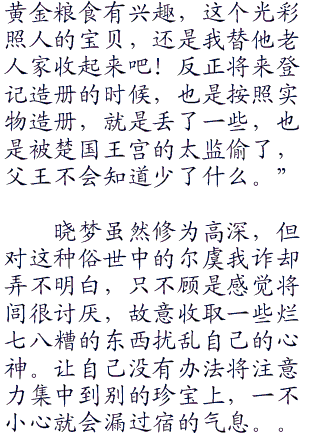 黄金粮食有兴趣，这个光彩
照人的宝贝，还是我替他老
人家收起来吧！反正将来登
记造册的时候，也是按照实
物造册，就是丢了一些，也
是被楚国王宫的太监偷了，
父王不会知道少了什么。”
晓梦虽然修为高深，但
对这种俗世中的尔虞我诈却
弄不明白，只不顾是感觉将
闾很讨厌，故意收取一些烂
七八糟的东西扰乱自己的心
神。让自己没有办法将注意
力集中到别的珍宝上，一不
小心就会漏过宿的气息。。